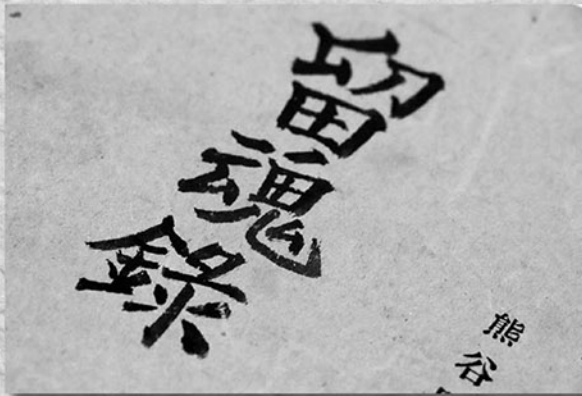 留魂錄
熊谷